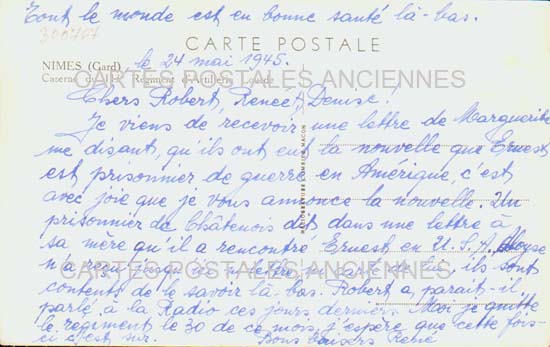 Tout le monde est en bonne santé là-bas.
300767
CARTE POSTALE
NIMES (Gard) le 24 mai 1945.
Caserne du Régiment d'Artillerie Lourde
CARTES POSTALES ANCIENNES
Chers Robert, Renée, Denise!
Je viens de recevoir une lettre de Marguerite
me disant, qu'ils ont eut la nouvelle que Ernest
est prisonnier de guerre en Amérique, c'est
avec joie que je vous annonce la nouvelle. Un
prisonnier de Châtenois dit dans une lettre à
sa mère qu'il a rencontré Ernest en U.S.A.
n'a reçu jusqu'ici ni lettre ni carte de lui, ils sont
CARTES POSTALES ANCIENNES
contents de le savoir là-bas. Robert a, parait-il,
parlé à la Radio ces jours derniers. Moi je quitte
le regiment le 30 de ce mois, j'espère que cette fois-
ci c'est sur. Bons baisers René